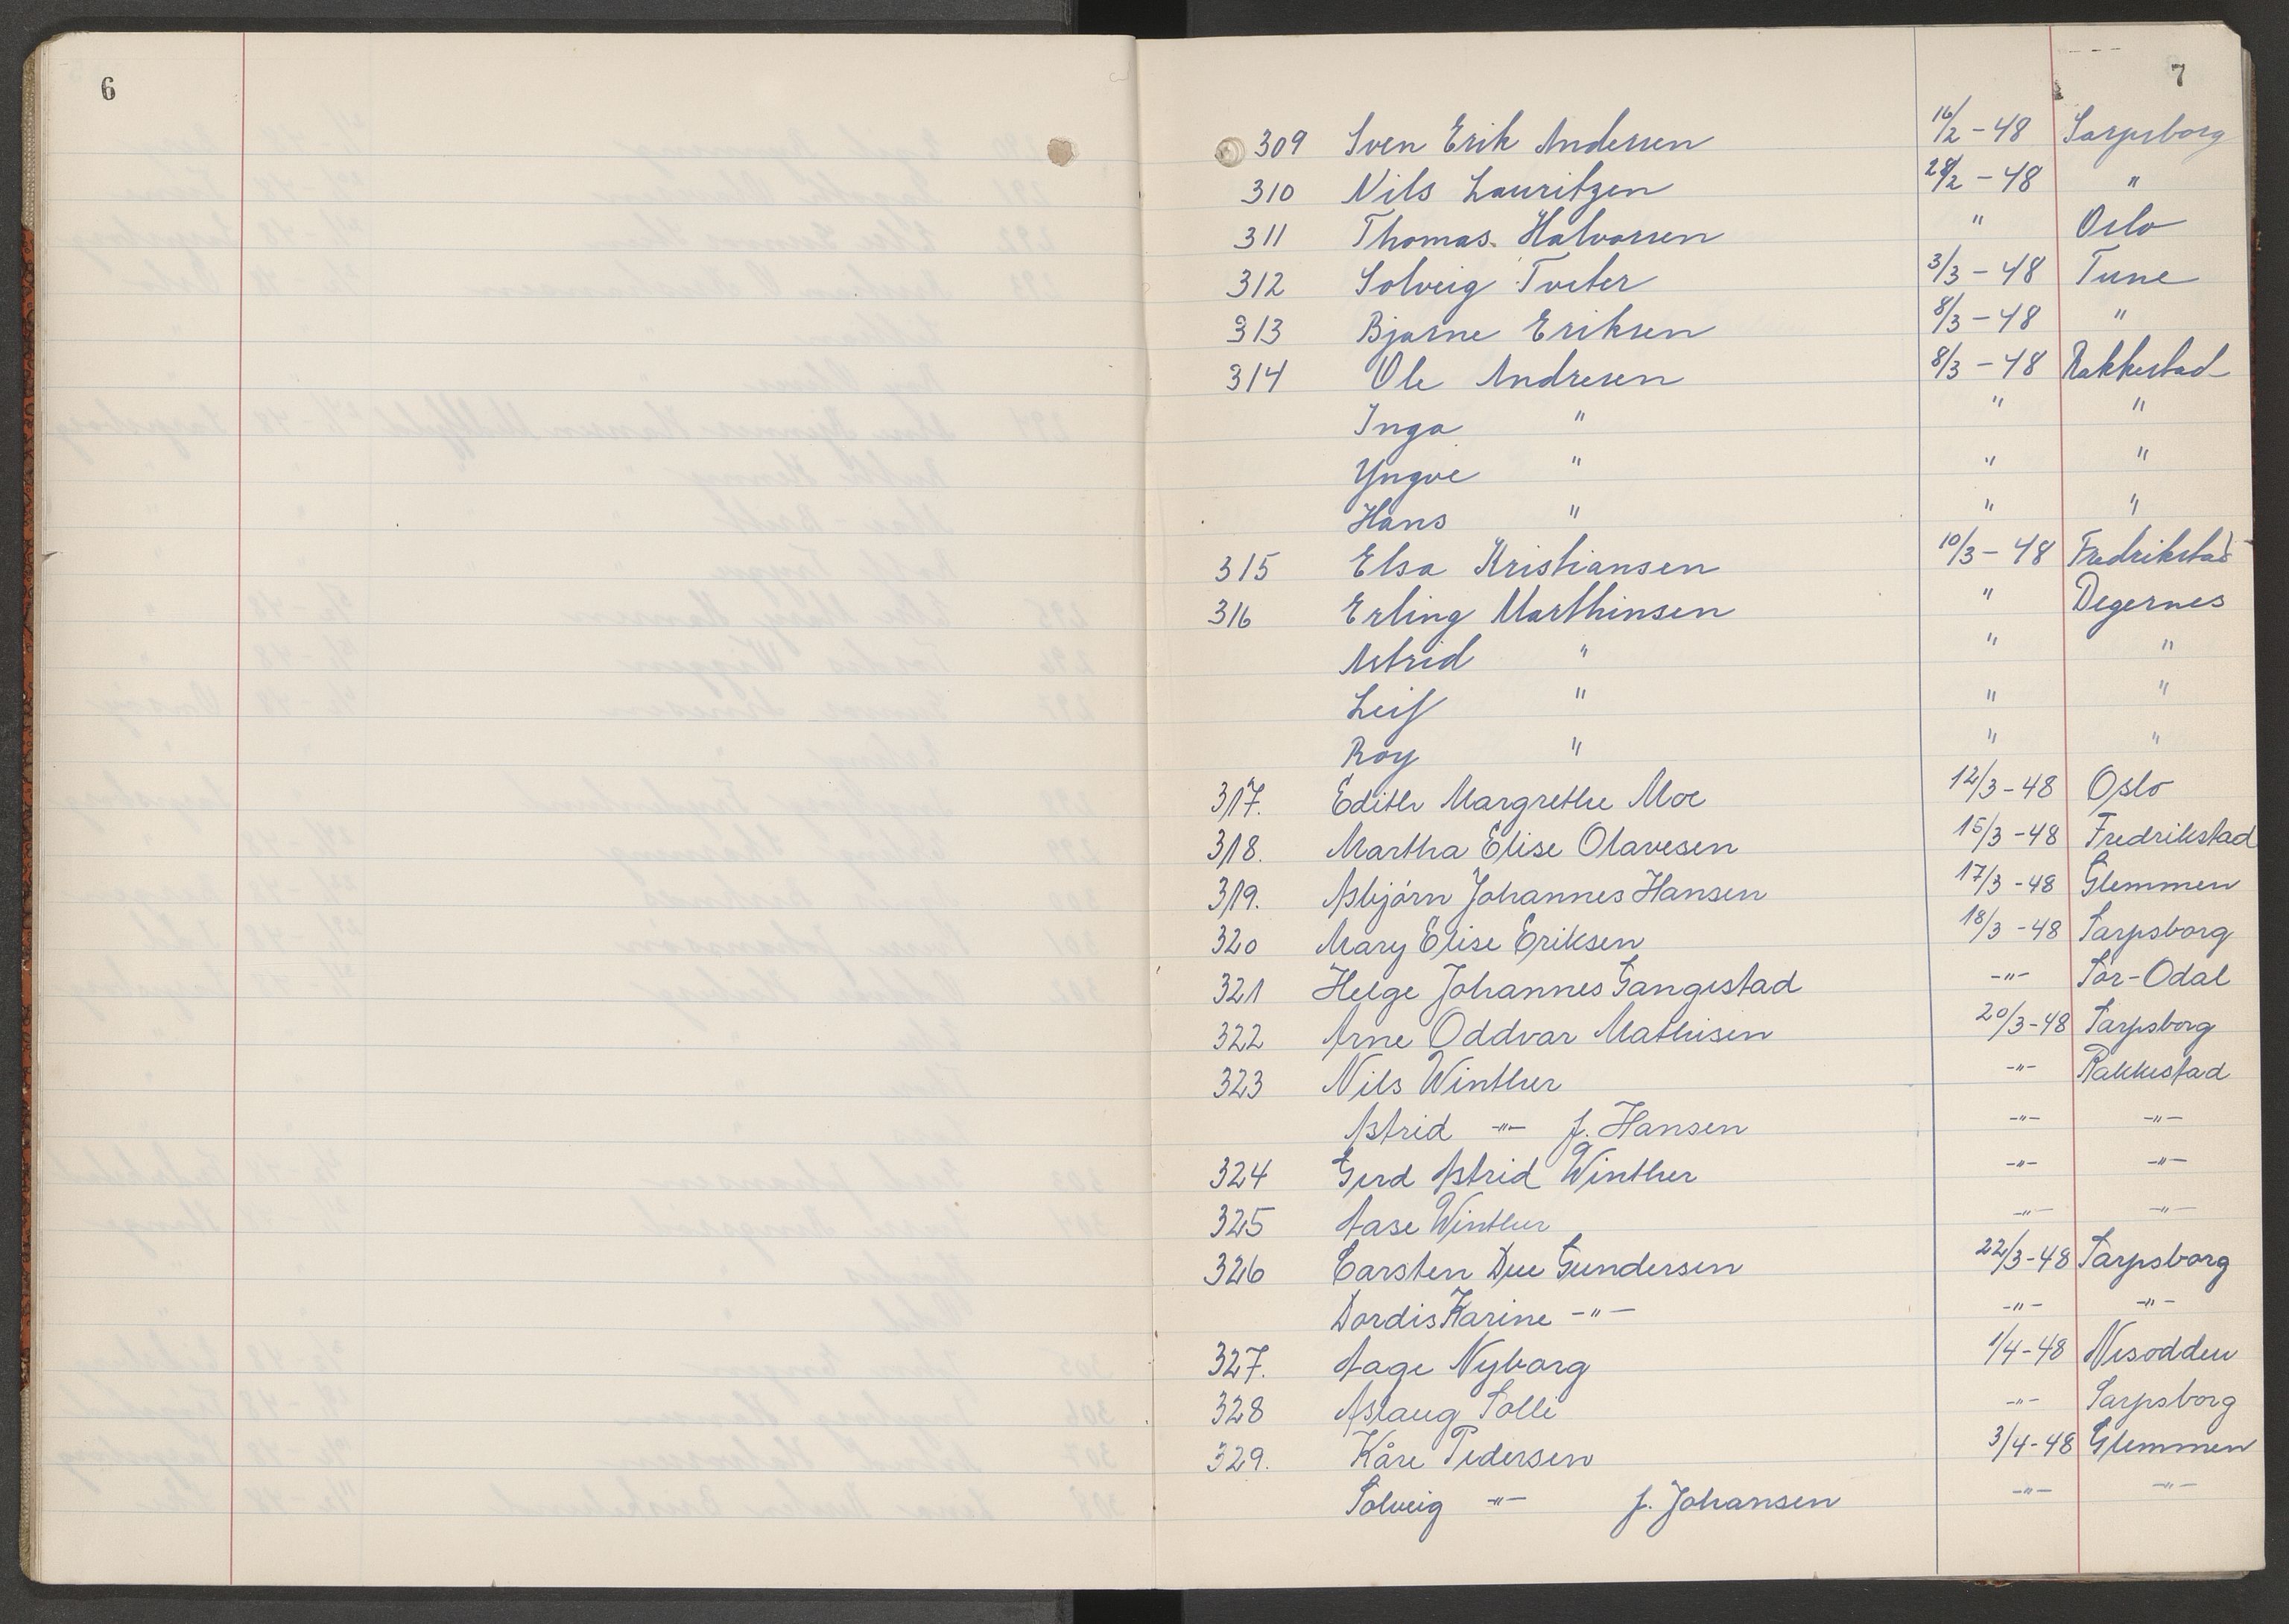 6
7
309 Sven Erik Andersen 16/2-48 Sarpsborg
310 Nils Lauritzen 28/2-48 "
311 Thomas Halvorsen " Oslo
312 Solveig Tveter 3/3-48 Tune
313 Bjarne Eriksen 8/3-48 "
314 Ole Andresen 8/3-48 Rakkestad
Inga " " "
Yngve " " "
Hans " " "
315 Elsa Kristiansen 10/3-48 Fredrikstad
316 Erling Marthinsen " Degernes
Astrid " " "
Leif " " "
Roy " " "
317. Edith Margrethe Moe 12/3-48 Oslo
318. Martha Elise Olavesen 15/3-48 Fredrikstad
319. Asbjørn Johannes Hansen 17/3-48 Glemmen
320 Mary Elise Eriksen 18/3-48 Sarpsborg
321 Helge Johannes Gangestad -"- Sør-Odal
322 Arne Oddvar Mathisen 20/3-48 Sarpsborg
323 Nils Winther -"- Rakkestad
Astrid -"- f. Hansen -"- -"-
324 Gerd Astrid Winther -"- -"-
325 Aase Winther -"- -"-
326 Carsten Due Gundersen 22/3-48 Sarpsborg
Dordis Karine -"- -"- -"-
327. Aage Nyborg 1/4-48 Nesodden
328 Aslaug Solli -"- Sarpsborg
329. Kåre Pedersen 3/4-48 Glemmen
Solveig -"- f. Johansen -"- -"-